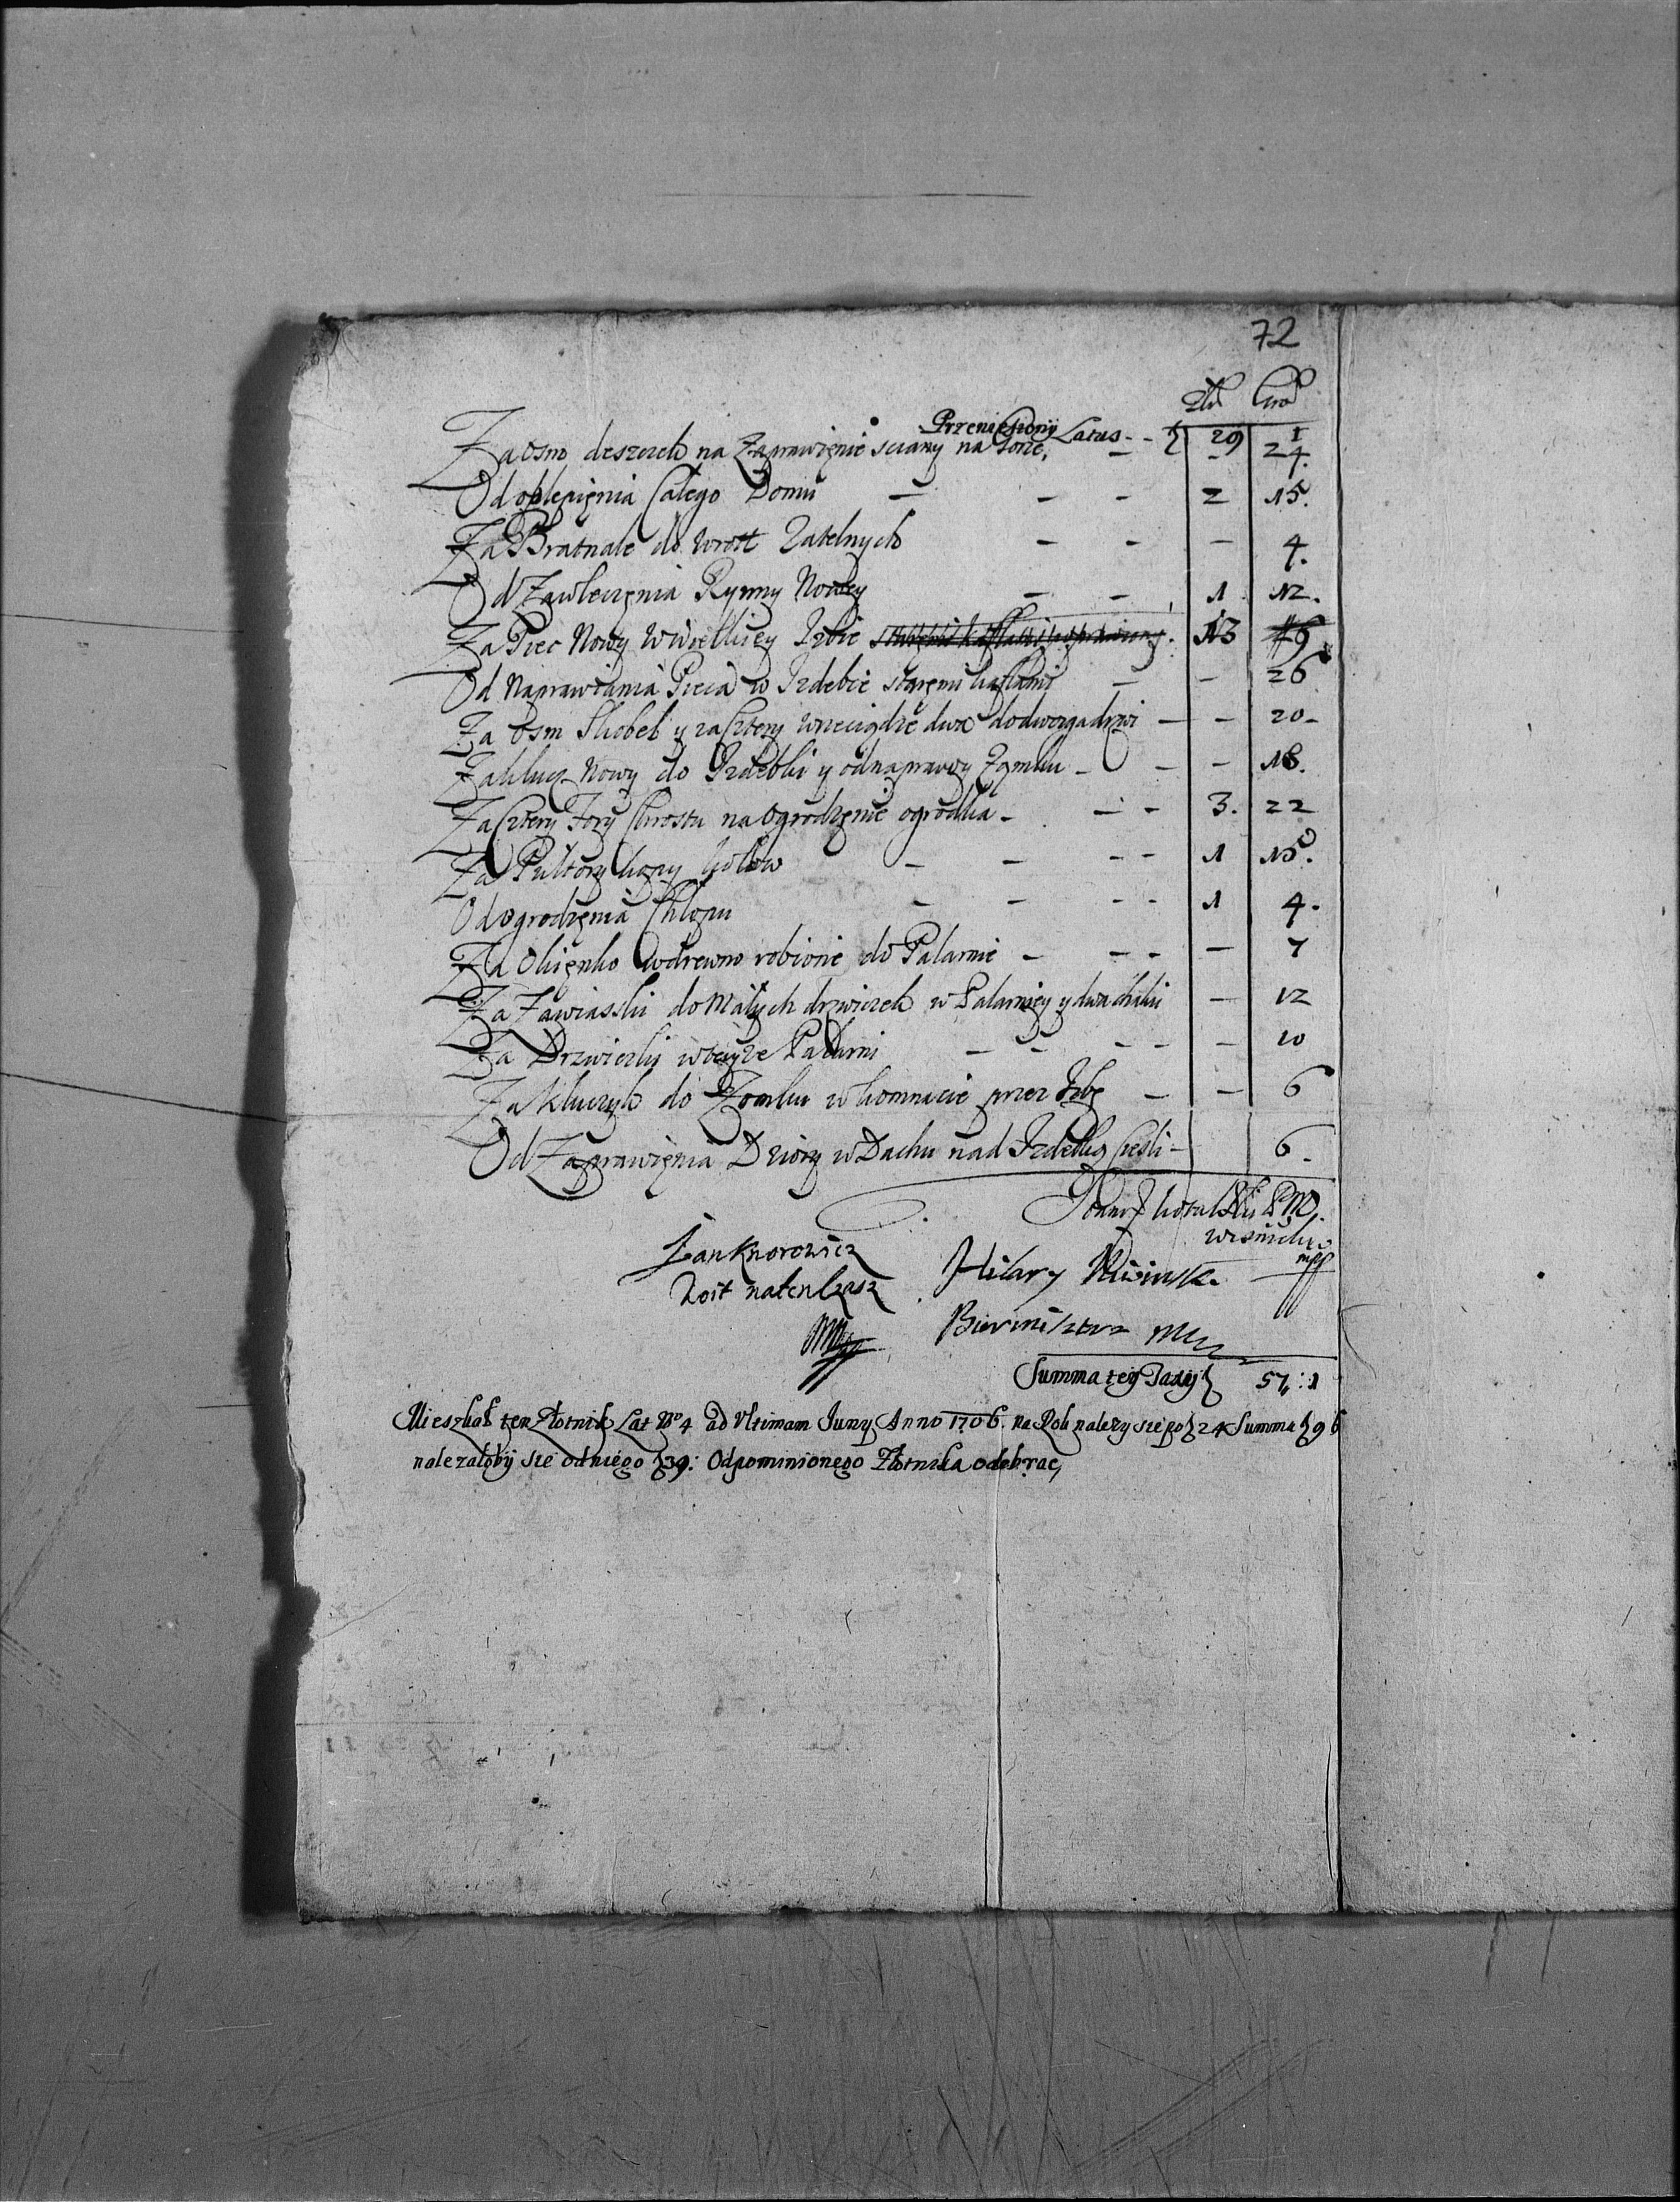 72
Zł Gro
Przeniesiony Latus - - 29 1
Za osm deszczek na Zaprawięnie sciany na Torze, - - 24.
Od oblepięnia Całego Domu - - - 2 15.
Za Bratnale do wrot Zatelnych - - - 4.
Od Zawleczęnia Rynny Nowey - - 1 12.
Za Piec Nowy w Wielkiey Izbie 13 6
Od Naprawiania Pieca w Izdebce staremi kaflami - - 26
Za Osm Skobel y za Cztery wrzeciądze dwa do dwoyga drzwi - - 20 -
Za klucz Nowy do Izdebki y od naprawy Zamku - - - 18.
Za Cztery Fory Chrostu na ogrodzęnie ogrodka - - - 3. 22
Za Pułtory kopy kołow - - - - 1 15.
Od ogrodzęnia Chłopu - - - - 1 4.
Za Okięnko w drewno robione do Palarnie - - - - 7
Za Zawiasski do Małych drzwiczek w Palarniey y dwa haki - 12
Za Drzwiczki w teyze Palarni - - - - - 10
Za Kluczyk do Zomku w komnacie przez Izbę - - 6
Od Zaprawięnia Dziory w Dachu nad Izdebką Cieśli - 6.
Jan Knorowicz
Woit natenczasz
Hilary
Burmistrz mp
Summa tey Taxy 57 : 1
Mieszkał ten Złotnik Lat No 4 ad Vltimam Juny Anno 1706. na Rok nalezy sie po 24 Summa 96
nalezałoby sie od niego 39: Od pominionego Złotnika odebrac,